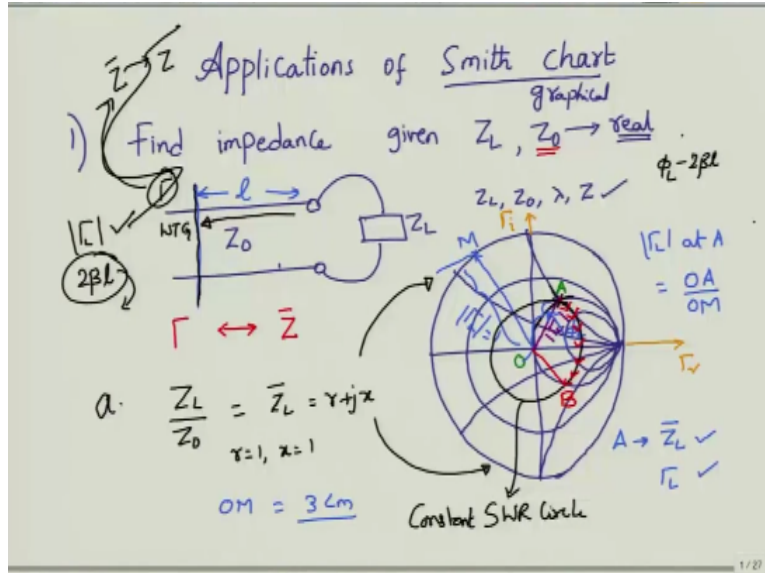 Z̄ → Z
Applications of Smith chart
graphical
1) Find impedance given Z_L, Z_0 → real
Z_L, Z_0, λ, Z ✓
φ_L - 2βl
Γ
l
WTG
Z_0
Z_L
|Γ_L| ✓
2βl
Γ ↔ Z̄
Γ_i
M
A
|Γ_L| =
O
B
Γ_r
|Γ_L| at A
= OA/OM
a. Z_L/Z_0 = Z̄_L = r+jx
r=1, x=1
A → Z̄_L ✓
Γ_L ✓
OM = 3 cm
Constant SWR Circle
1/27